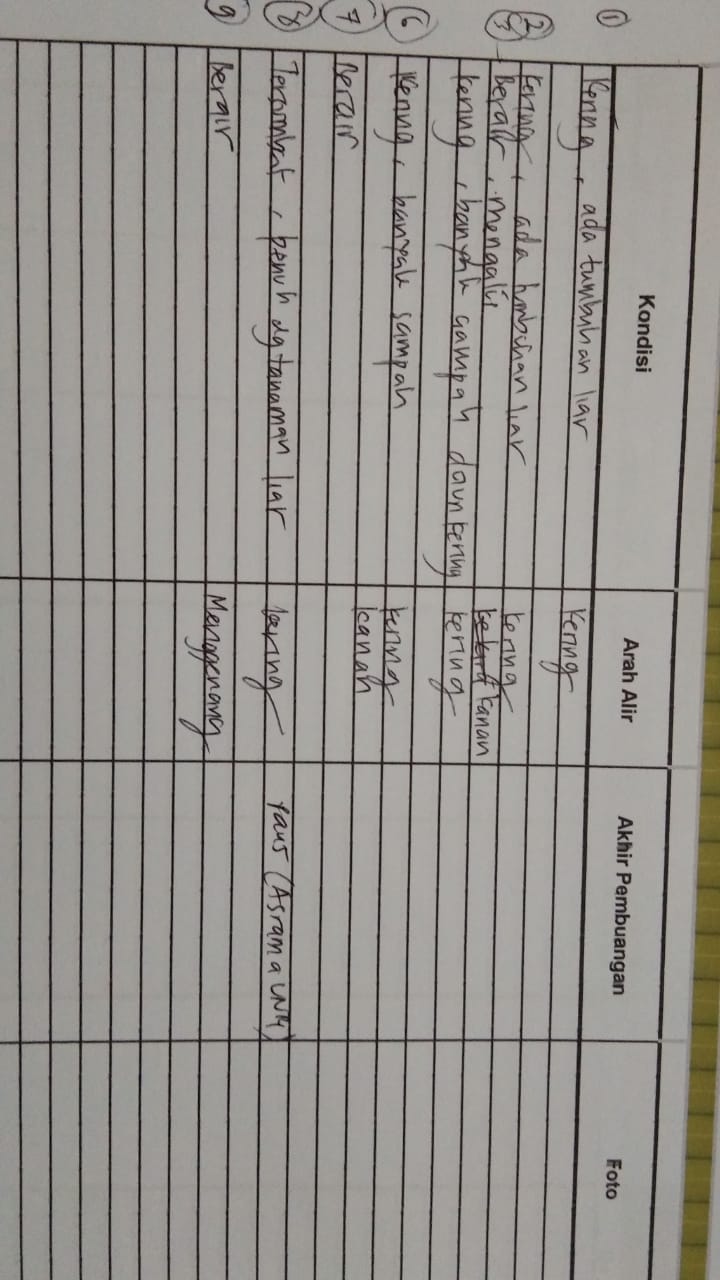 Kondisi Arah Alir Akhir Pembuangan Foto
1 Kering, ada tumbuhan liar Kering
2 Kering, ada tumbuhan liar Kering
3 Berair, mengalir kanan
Kering, banyak sampah daun kering kering
6 Kering, banyak sampah kering
7 Berair kanan
8 Tersumbat, penuh dg tanaman liar kering (Asrama
9 Berair Menggenang